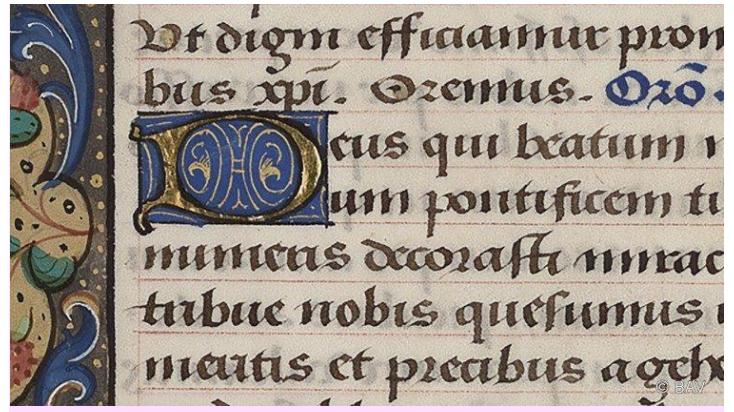 Vt digni efficiamur pron
bus xpī. Oremus. Orō.
Deus qui beatum n
um pontificem tu
numeris decorasti mirac
tribue nobis quesumus
meritis et precibus a gehe
© BAV